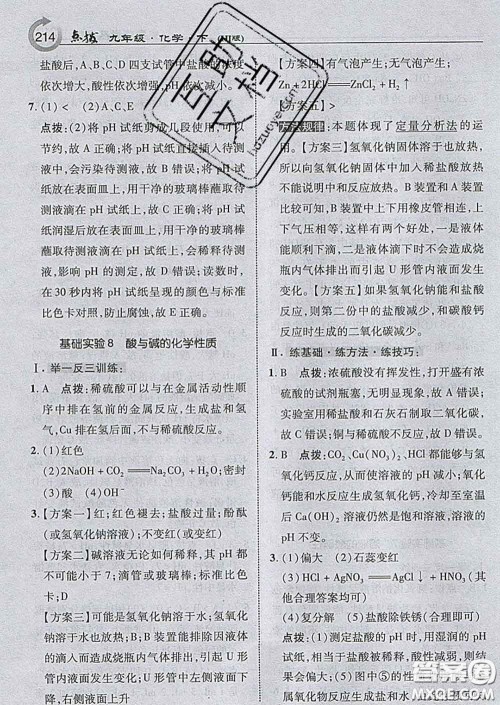 214 点拨 九年级·化学·下
盐酸后,A、B、C、D 四支试管中盐酸的浓度
依次增大,酸性依次增强,pH 依次减小。
7.(1)< (2)A、C、E
点拨:(2)将 pH 试纸剪成几段使用,可以
节约,故 A 正确;将 pH 试纸直接插入待测
液中,会污染待测液,故 B 错误;将 pH 试
纸放在表面皿上,用干净的玻璃棒蘸取待
测液滴在 pH 试纸上,故 C 正确;将 pH 试
纸润湿后放在表面皿上,用干净的玻璃棒
蘸取待测液滴在 pH 试纸上,会稀释待测
液,影响 pH 的测定,故 D 错误;读数时,
在 30 秒内将 pH 试纸呈现的颜色与标准
比色卡对照,防止腐蚀,故 E 正确。
基础实验 8 酸与碱的化学性质
Ⅰ.举一反三训练:
1. A 点拨:稀硫酸可以与在金属活动性顺
序中排在氢前的金属反应,生成盐和氢
气,Cu 排在氢后面,不与稀硫酸反应。
2.(1)红色
(2)2NaOH+CO₂═══Na₂CO₃+H₂O;密封
(3)酸 (4)OH⁻
3.【方案一】红;红色褪去;盐酸过量;酚酞
(或氢氧化钠溶液);不变红(或变红)
【方案二】碱溶液无论如何稀释,其 pH 不可
能小于 7;滴管或玻璃棒;标准比色
卡;D
【方案三】可能是氢氧化钠溶于水;氢氧化
钠溶于水放热;B 装置能排除因液体
的滴入而造成烧瓶内气体排出,引起 U
形管内液面发生变化;左侧液面下
降,右侧液面上升
【方案四】有气泡产生;无气泡产生;
Zn+2HCl═══ZnCl₂+H₂↑
【方案五】>
方法规律:本题体现了定量分析法的运
用。【方案三】氢氧化钠固体溶于也放热,
所以向氢氧化钠固体中加入稀盐酸放热
不能说明中和反应放热。B 装置和 A 装置
比较可知,B 装置中上下用橡皮管相连,上
下气压相等,这样有两个好处,一是液体
能顺利下滴,二是液体滴下时不会造成烧
瓶内气体排出而引起 U 形管内液面发生
变化。【方案五】如果氢氧化钠能和盐酸
反应,则第二份中的盐酸减少,和碳酸钙
反应生成的二氧化碳减少。
Ⅱ.练基础·练方法·练技巧:
1. A 点拨:浓硫酸没有挥发性,打开盛有浓
硫酸的试剂瓶塞,无明显现象,故 A 错误;
实验室用稀盐酸和石灰石制取二氧化碳,
故 B 错误;铜与稀硫酸不反应,故 D 错误。
2. B 点拨:CO₂、Cu(NO₃)₂、HCl 都能够与氢
氧化钙反应,从而使溶液的 pH 减小;氧化
钙能和水反应生成氢氧化钙,冷却至室温
后 CaO 溶液仍然是饱和溶液,溶液的 pH
不变。
3.(1)偏大 (2)石蕊变红
(3)HCl+AgNO₃═══AgCl↓+HNO₃(其
他合理答案均可)
(4)复分解 (5)盐酸除铁锈(合理即可)
点拨:(1)测定盐酸的 pH 时,用湿润的 pH
试纸,相当于盐酸被稀释,酸性减弱,测得的
pH 会偏大;(5)图中⑤的性质
属氧化物反应生成盐和水
互助文档
hozuoye.com
答案圈
MXQE.COM